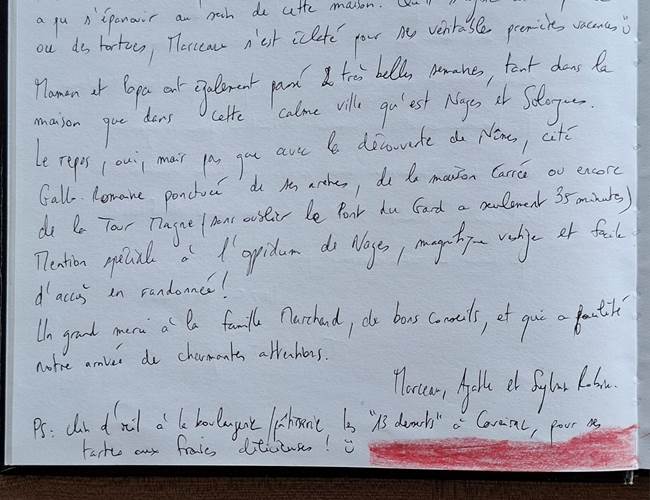 a pu s'épanouir au sein de cette maison.
ou des tortues, Marceau s'est éclaté pour ses véritables premières vacances
Maman et Papa ont également passé 2 très belles semaines, tant dans la
maison que dans cette calme ville qu'est Nages et Solorgues.
Le repos, oui, mais pas que avec la découverte de Nîmes, cité
Gallo-Romaine ponctuée de ses arènes, de la maison Carrée ou encore
de la Tour Magne (sans oublier le Pont du Gard a seulement 35 minutes)
Mention spéciale à l'oppidum de Nages, magnifique vestige et facile
d'accès en randonnée !
Un grand merci à la famille Marchand, de bons conseils, et qui a facilité
notre arrivée de charmantes attentions.
Marceau, Agathe et Sylvain
PS: clin d'œil à la boulangerie/pâtisserie les "13 desserts" à pour ses
tartes aux fraises délicieuses !